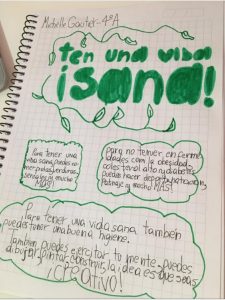 Michelle Gautier-4ºA
ten una vida
¡sana!
Para tener una
vida sana puedes co-
mer frutas, verduras,
y mucho
MÁS!
para no tener enferme
dades como la obesidad,
colesterol alto y diabetes
puedes hacer deporte, natación,
patinaje y mucho MÁS!
Para tener una vida sana también
puedes tener una buena higiene.
También puedes ejercitar tu mente, puedes
dibujar, pintar, construir, la idea es que seas
¡CREATIVO!